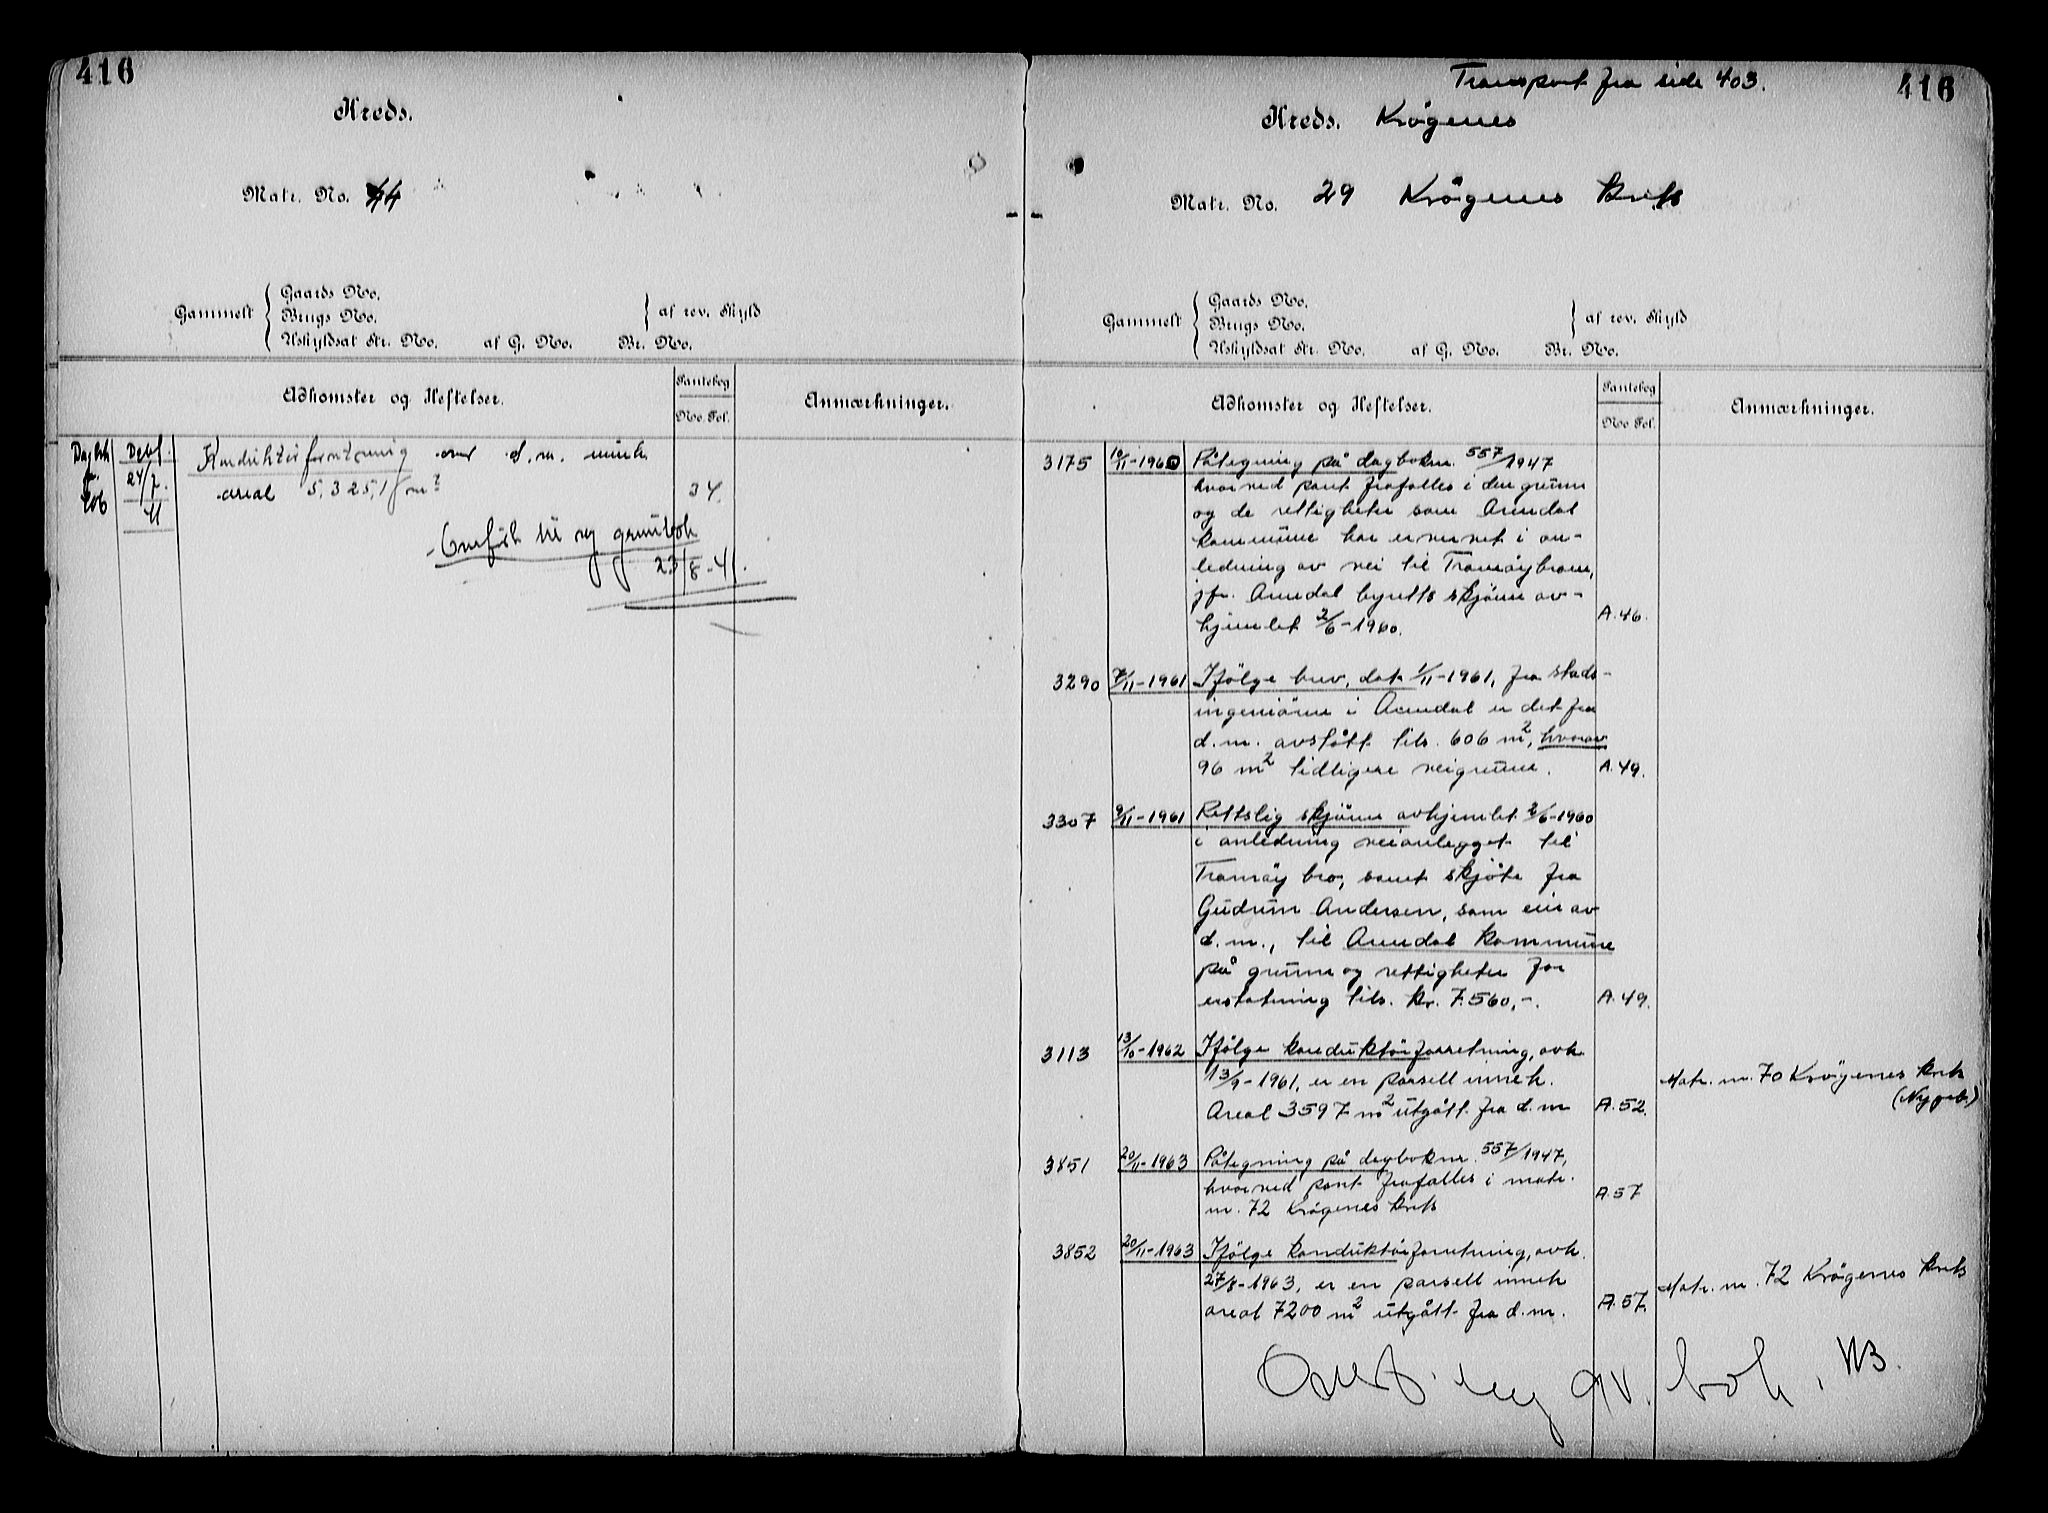 416
Kreds.
Matr. No. 44
Gammelt
Gaards No.
Brugs No.
Uskyldsat Str. No. af G. No. Br. No.
af rev. Skyld
Adkomster og Heftelser.
Pantebog
No. Fol.
Anmærkninger.
Dagbok Dgbf.
24/7. Konduktørforretning over d.m. innh.
areal 5,325,1 m²
34.
41
Overført til ny grunnbok
23/8-41.
Transport fra side 403.
416
Kreds. Krøgenes
Matr. No. 29 Krøgenes krets
Gammelt
Gaards No.
Brugs No.
Uskyldsat Str. No. af G. No. Br. No.
af rev. Skyld
Adkomster og Heftelser.
Pantebog
No. Fol.
Anmærkninger.
3175 10/11-1960 Påtegning på dagboknr. 557/1947
hvorved pant frafalles i den grunn
og de rettigheter som Arendal
kommune har ervervet i an-
ledning av vei til Tromøybroen,
jfr. Arendal byretts skjønn av-
hjemlet 2/6-1960. A.46.
3290 7/11-1961 Ifølge brev, dat. 1/11-1961, fra stads-
ingeniøren i Arendal er det fra
d.m. avstått tils. 606 m², hvorav
96 m² tidligere veigrunn. A.49.
3307 9/11-1961 Rettslig skjønn avhjemlet 2/6-1960
i anledning veianlegget til
Tromøy bro, samt skjøte fra
Gudrun Andersen, som eier av
d.m., til Arendal kommune
på grunn og rettigheter for
erstatning tils. kr. 7.560,-. A.49.
3113 13/10-1962 Ifølge konduktørforretning, avh.
13/9-1961, er en parsell inneh.
Areal 3597 m² utgått fra d.m. A.52. Matr. nr. 70 Krøgenes krets
3851 20/11-1963 Påtegning på dagboknr. 557/1947,
hvorved pant frafalles i matr.
nr. 72 Krøgenes krets A.57
3852 20/11-1963 Ifølge konduktørforretning, avh.
27/8-1963, er en parsell inneh.
areal 7200 m² utgått fra d.m. A.57. Matr. nr. 72 Krøgenes krets
Overf. ny gr. bok. NB.